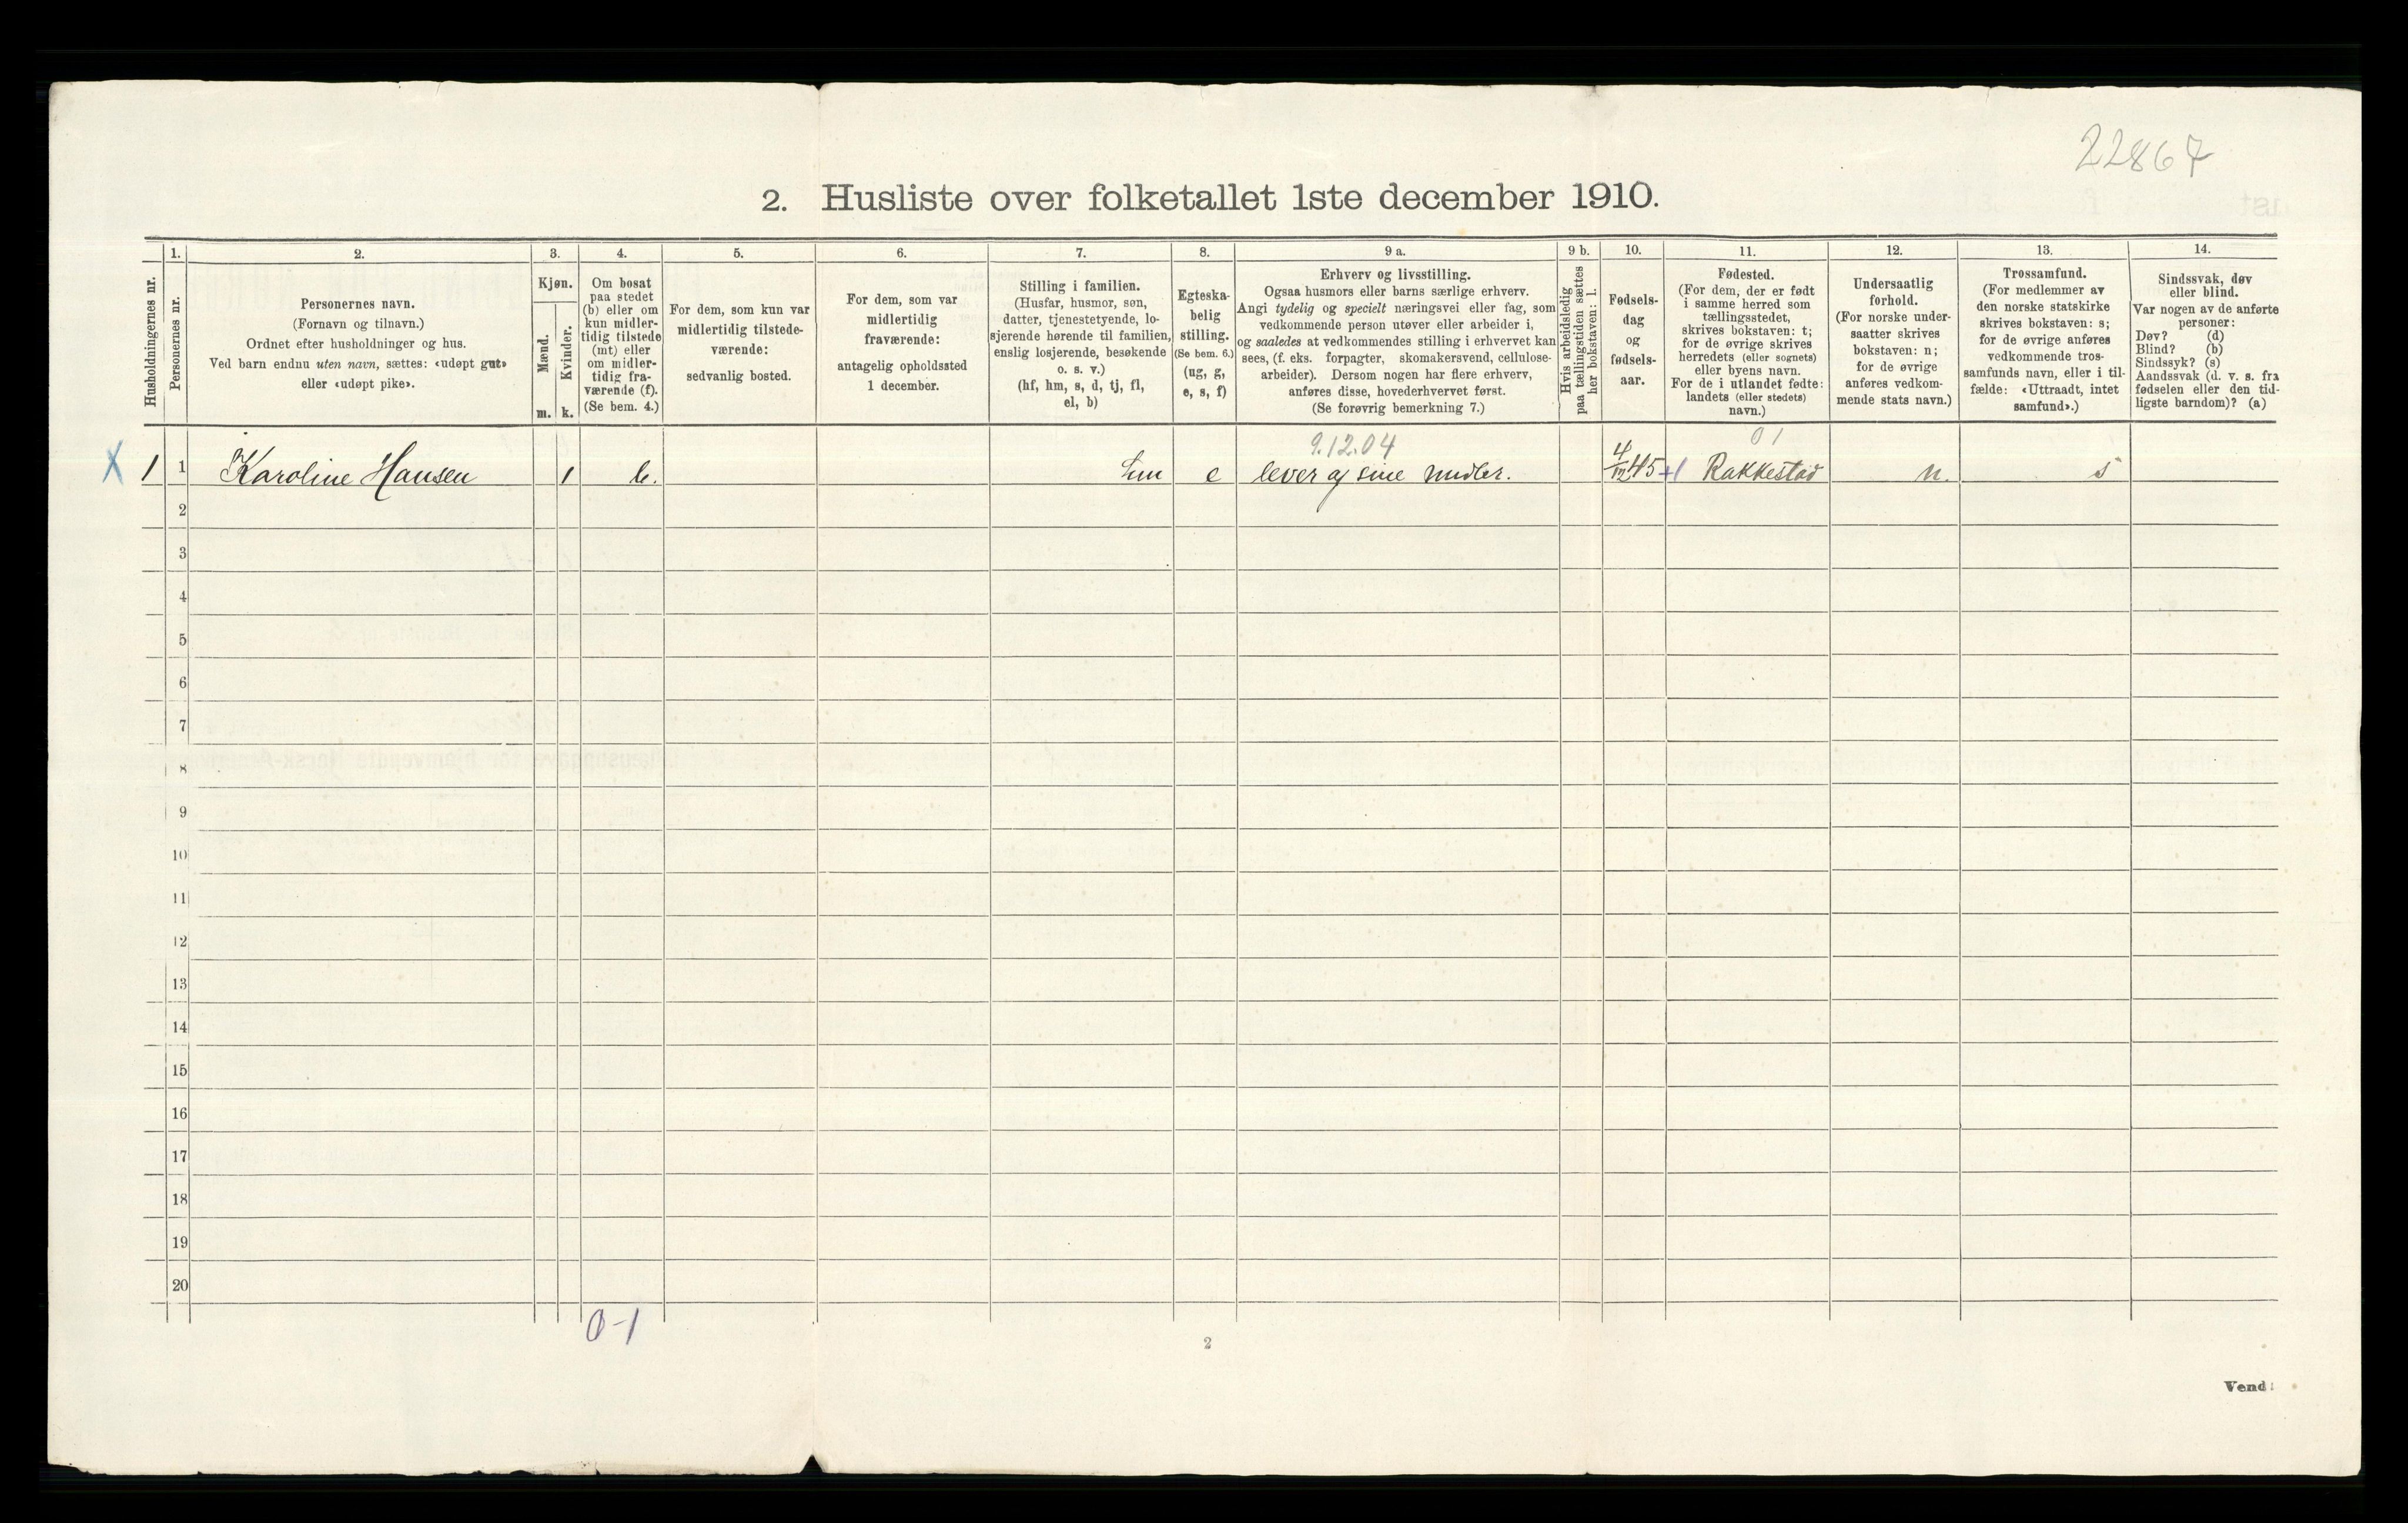 22867
2. Husliste over folketallet 1ste december 1910.
Husholdningernes nr.
1.
Personernes nr.
2.
Personernes navn.
(Fornavn og tilnavn.)
Ordnet efter husholdninger og hus.
Ved barn endnu uten navn, sættes: «udøpt gut»
eller «udøpt pike».
3.
Kjøn.
Mænd.
m.
Kvinder.
k.
4.
Om bosat
paa stedet
(b) eller om
kun midler-
tidig tilstede
(mt) eller
om midler-
tidig fra-
værende (f).
(Se bem. 4.)
5.
For dem, som kun var
midlertidig tilstede-
værende:
sedvanlig bosted.
6.
For dem, som var
midlertidig
fraværende:
antagelig opholdssted
1 december.
7.
Stilling i familien.
(Husfar, husmor, søn,
datter, tjenestetyende, lo-
sjerende hørende til familien,
enslig losjerende, besøkende
o. s. v.)
(hf, hm, s, d, tj, fl,
el, b)
8.
Egteska-
belig
stilling.
(Se bem. 6.)
(ug, g,
e, s, f)
9 a.
Erhverv og livsstilling.
Ogsaa husmors eller barns særlige erhverv.
Angi tydelig og specielt næringsvei eller fag, som
vedkommende person utøver eller arbeider i,
og saaledes at vedkommendes stilling i erhvervet kan
sees, (f. eks. forpagter, skomakersvend, cellulose-
arbeider). Dersom nogen har flere erhverv,
anføres disse, hovederhvervet først.
(Se forøvrig bemerkning 7.)
9 b.
Hvis arbeidsledig
paa tællingstiden sættes
her bokstaven: l.
10.
Fødsels-
dag
og
fødsels-
aar.
11.
Fødested.
(For dem, der er født
i samme herred som
tællingsstedet,
skrives bokstaven: t;
for de øvrige skrives
herredets (eller sognets)
eller byens navn.
For de i utlandet fødte:
landets (eller stedets)
navn.)
12.
Undersaatlig
forhold.
(For norske under-
saatter skrives
bokstaven: n;
for de øvrige
anføres vedkom-
mende stats navn.)
13.
Trossamfund.
(For medlemmer av
den norske statskirke
skrives bokstaven: s;
for de øvrige anføres
vedkommende tros-
samfunds navn, eller i til-
fælde: «Uttraadt, intet
samfund».)
14.
Sindssvak, døv
eller blind.
Var nogen av de anførte
personer:
Døv? (d)
Blind? (b)
Sindssyk? (s)
Aandssvak (d. v. s. fra
fødselen eller den tid-
ligste barndom)? (a)
9.12.04 01
X 1 1 Karoline Hansen 1 b. hm e lever af sine midler. 4/12 45 +1 Rakkestad n. s
2
3
4
5
6
7
8
9
10
11
12
13
14
15
16
17
18
19
20
0-1
2
Vend!